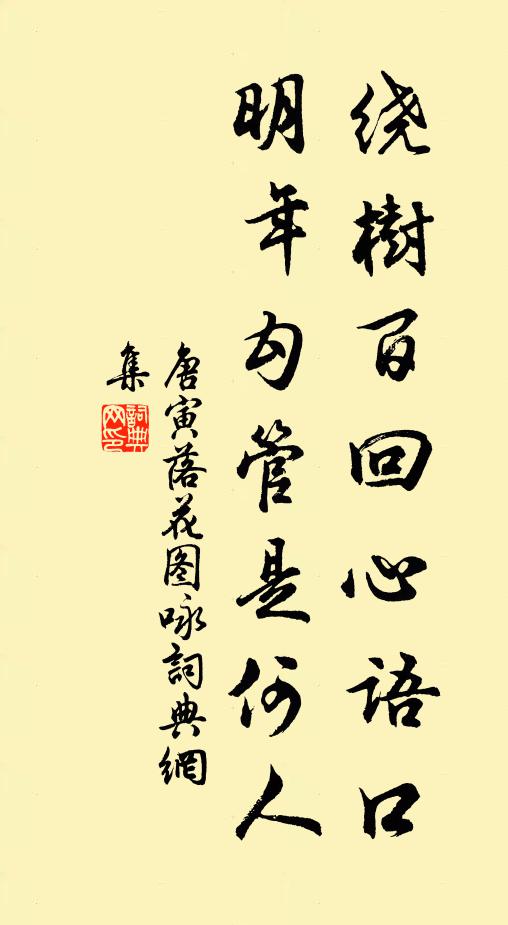 绕樹百回心语口
明年勾管是何人
唐寅落花图咏詞典網
集
詞典网印